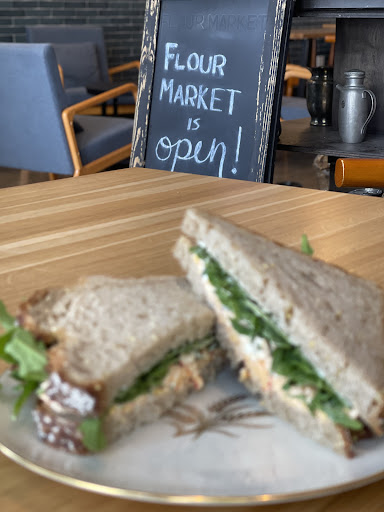 FLOUR MARKET
FLOUR
MARKET
IS
open!